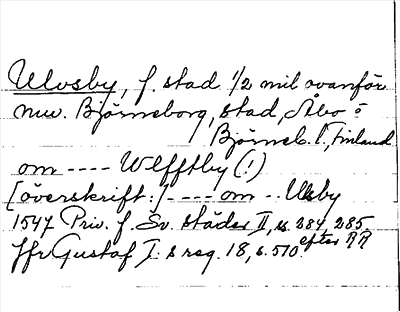 Ulvsby, f. stad 1/2 mil ovanför
nuv. Björneborg, stad, Åbo o
Björneb. l., Finland
om ---- Wlfftby (!)
[överskrift:] ---- om .. Ulsby
1547 Priv. f. Sv. städer II, s. 284, 285.
efter RR
Jfr Gustaf I:s reg. 18, s. 510.